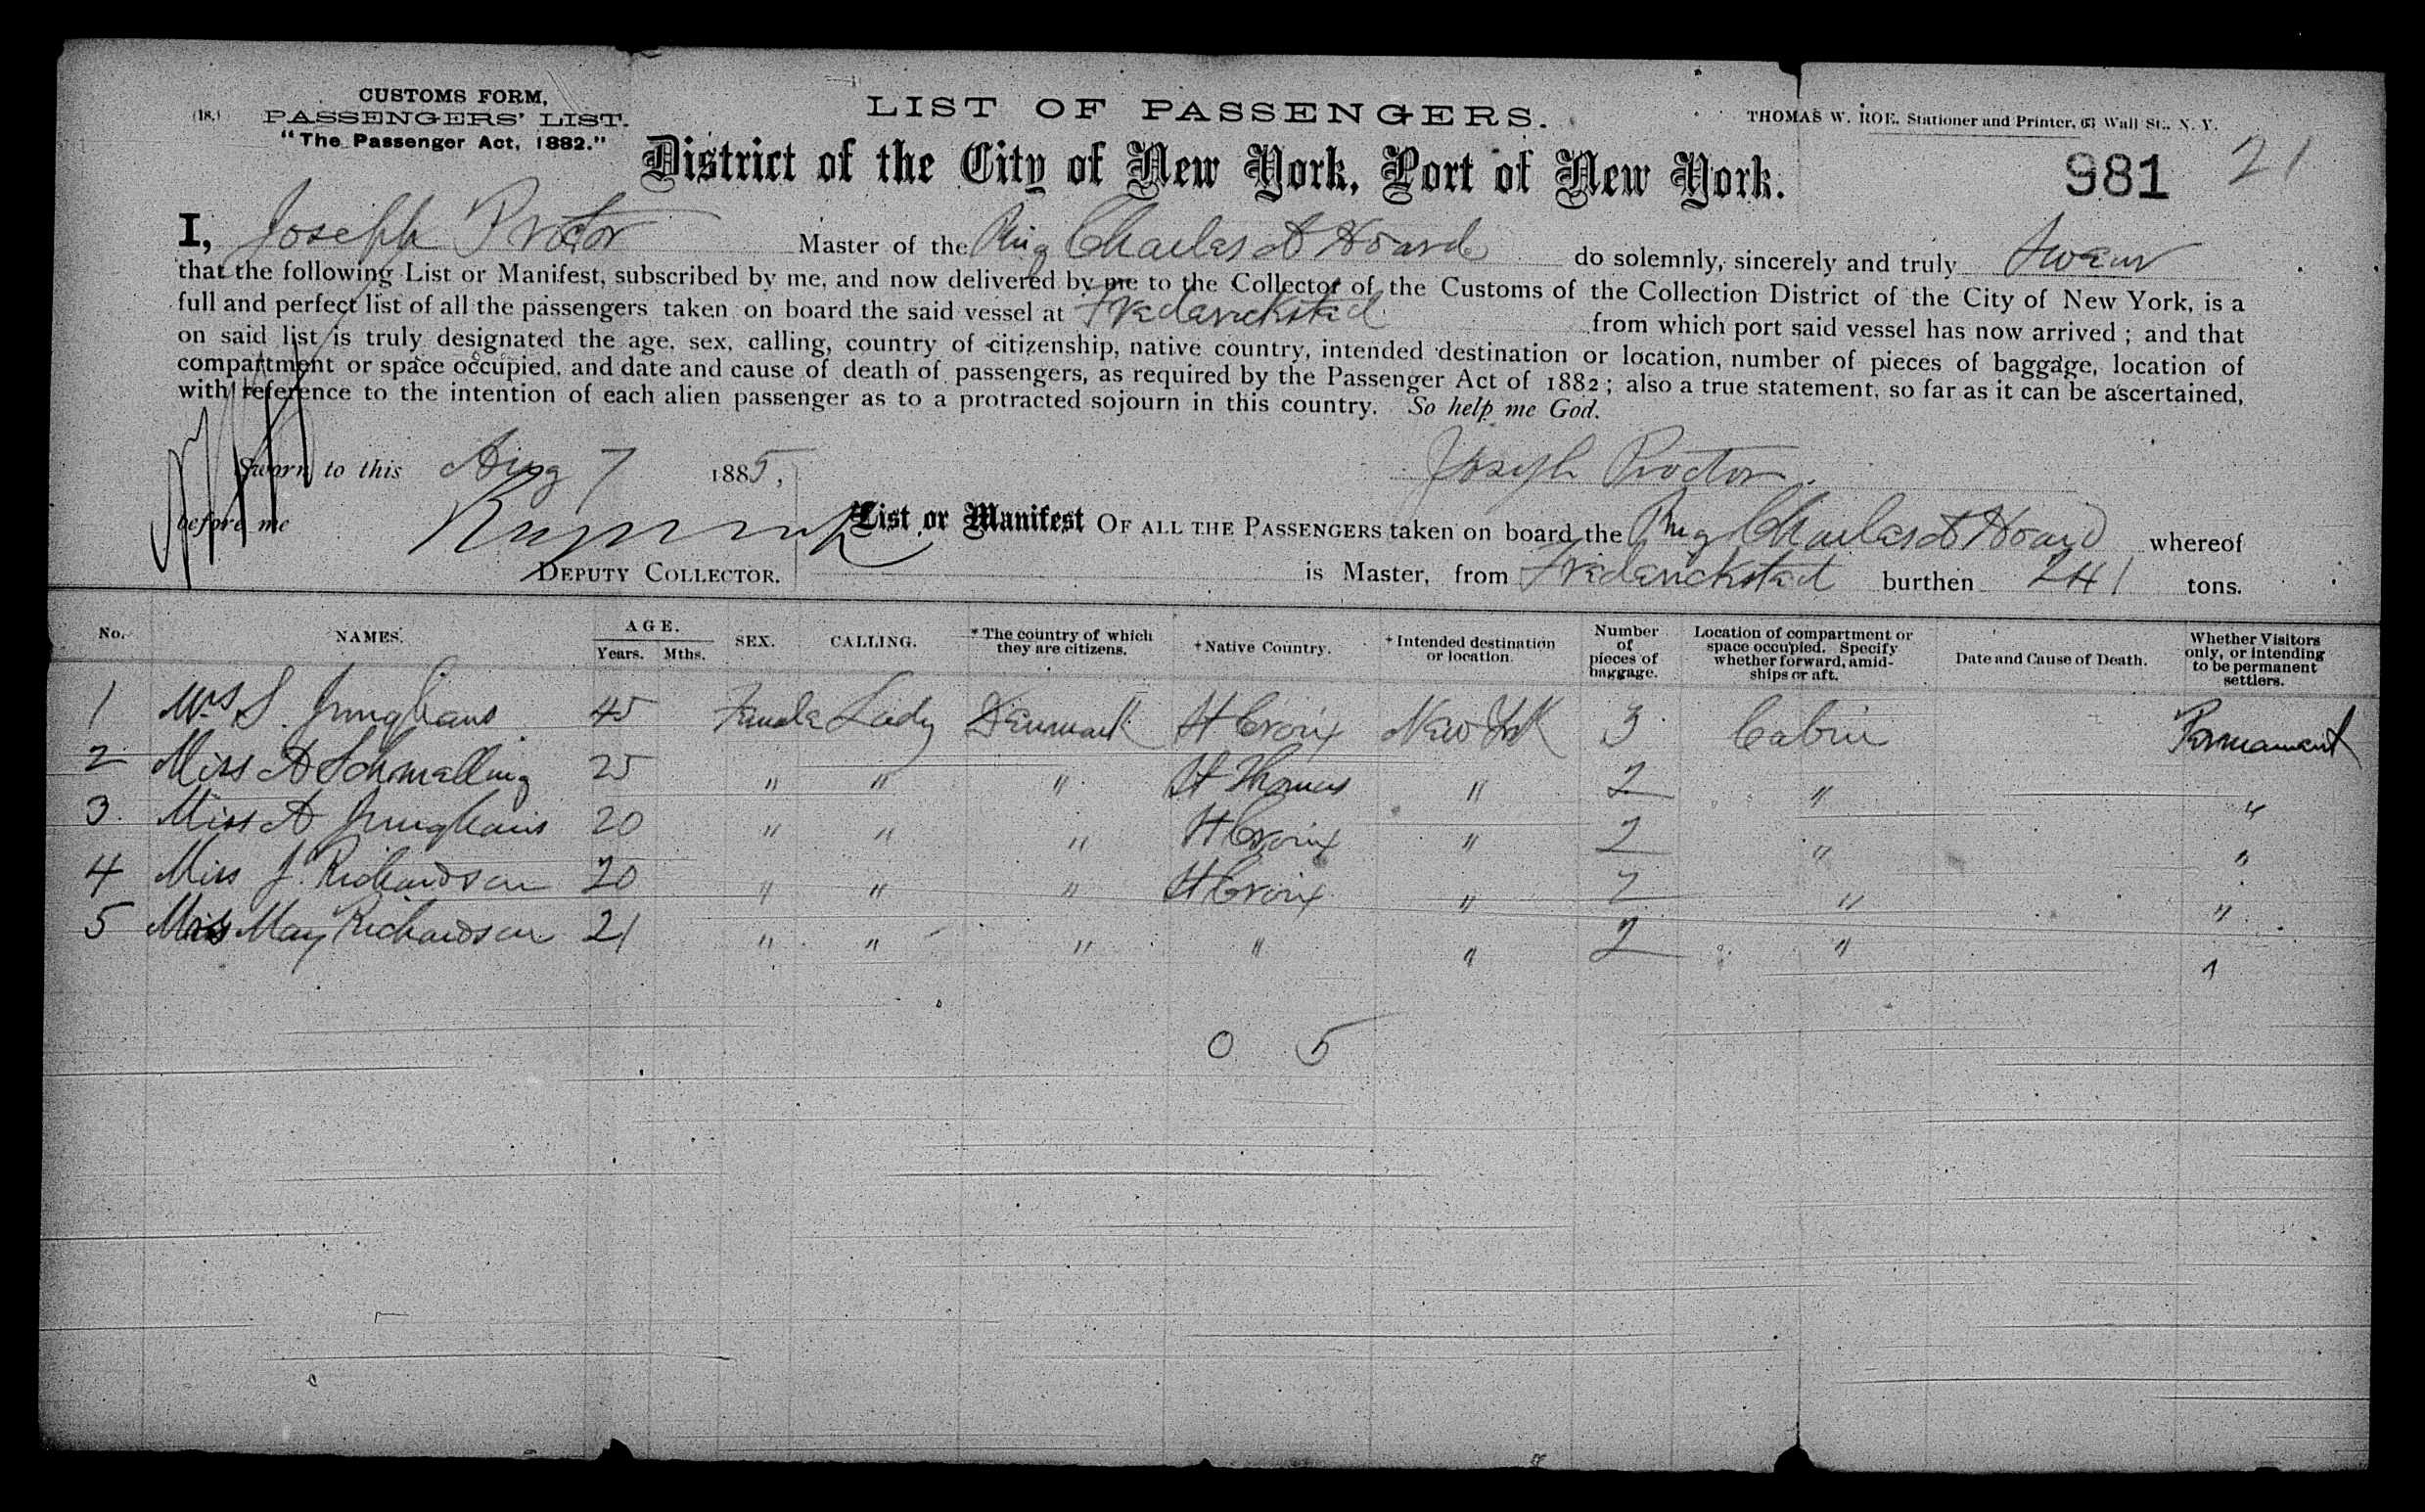 (18.)
CUSTOMS FORM,
PASSENGERS' LIST.
"The Passenger Act, 1882."
LIST OF PASSENGERS.
THOMAS W. ROE, Stationer and Printer, 63 Wall St., N. Y.
District of the City of New York, Port of New York.
981 21
I, Joseph Proctor Master of the Brig Charles A Hoard do solemnly, sincerely and truly Swear
that the following List or Manifest, subscribed by me, and now delivered by me to the Collector of the Customs of the Collection District of the City of New York, is a
full and perfect list of all the passengers taken on board the said vessel at Fredericksted from which port said vessel has now arrived ; and that
on said list is truly designated the age, sex, calling, country of citizenship, native country, intended destination or location, number of pieces of baggage, location of
compartment or space occupied, and date and cause of death of passengers, as required by the Passenger Act of 1882 ; also a true statement, so far as it can be ascertained,
with reference to the intention of each alien passenger as to a protracted sojourn in this country. So help me God.
Sworn to this Aug 7 1885,
Joseph Proctor
before me
DEPUTY COLLECTOR.
List or Manifest OF ALL THE PASSENGERS taken on board the Brig Charles A Hoard whereof
is Master, from Frederickstad burthen 241 tons.
No. NAMES. AGE. Years. Mths. SEX. CALLING. *The country of which they are citizens. +Native Country. +Intended destination or location. Number of pieces of baggage. Location of compartment or space occupied. Specify whether forward, amidships or aft. Date and Cause of Death. Whether Visitors only, or intending to be permanent settlers.
1 Mrs S. Junghans 45 Female Lady Denmark St Croix New York 3 Cabin Permanent
2 Miss A Schmalling 25 " " " St Thomas " 2 " "
3. Miss A Junghans 20 " " " St Croix " 2 " "
4 Miss J. Richardson 20 " " " St Croix " 2 " "
5 Miss May Richardson 21 " " " " " 2 " "
0 5